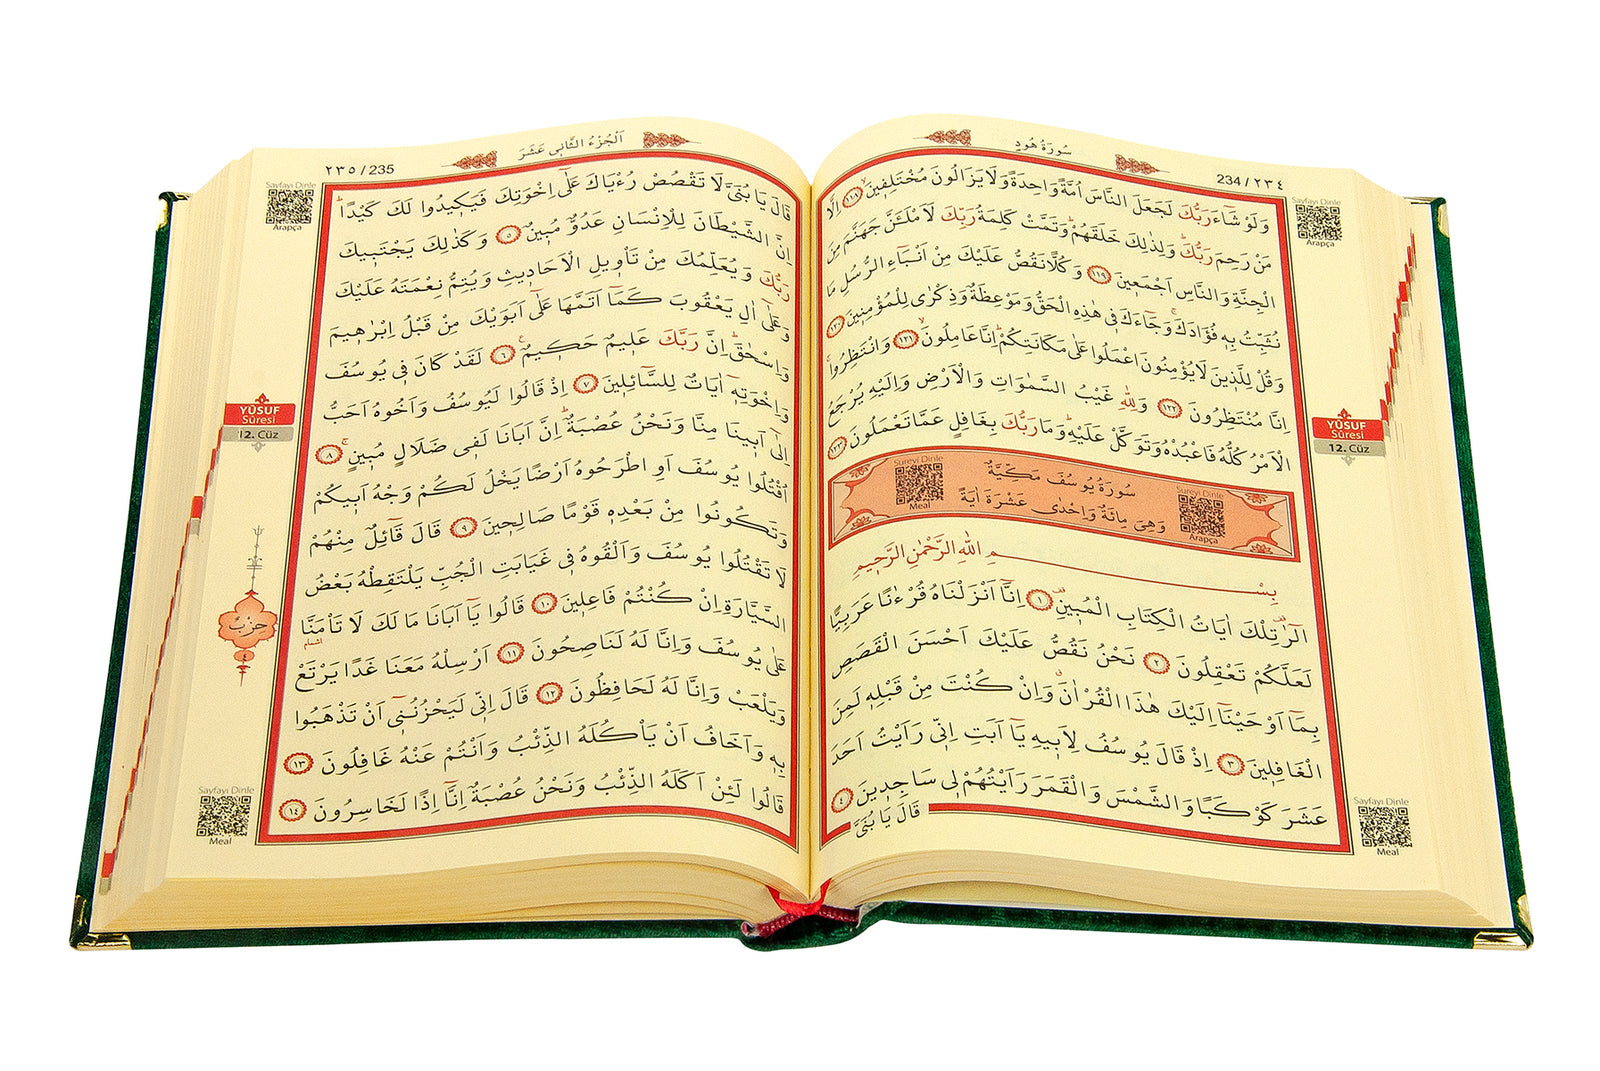 سُورَةُ هُودٍ
234 / ٢٣٤
Sayfayı Dinle
Arapça
وَلَوْ شَٓاءَ رَبُّكَ لَجَعَلَ النَّاسَ اُمَّةً وَاحِدَةً وَلَا يَزَالُونَ مُخْتَلِف۪ينَۙ ﴿١١٨﴾ اِلَّا
مَنْ رَحِمَ رَبُّكَۜ وَلِذٰلِكَ خَلَقَهُمْۜ وَتَمَّتْ كَلِمَةُ رَبِّكَ لَاَمْلَـَٔنَّ جَهَنَّمَ مِنَ
الْجِنَّةِ وَالنَّاسِ اَجْمَع۪ينَ ﴿١١٩﴾ وَكُلًّا نَقُصُّ عَلَيْكَ مِنْ اَنْـبَٓاءِ الرُّسُلِ مَا
نُثَبِّتُ بِه۪ فُؤٰادَكَۚ وَجَٓاءَكَ ف۪ي هٰذِهِ الْحَقُّ وَمَوْعِظَةٌ وَذِكْرٰى لِلْمُؤْمِن۪ينَ ﴿١٢٠﴾
وَقُلْ لِلَّذ۪ينَ لَا يُؤْمِنُونَ اعْمَلُوا عَلٰى مَكَانَتِكُمْۜ اِنَّا عَامِلُونَۙ ﴿١٢١﴾ وَانْتَظِرُواۚ
اِنَّا مُنْتَظِرُونَ ﴿١٢٢﴾ وَلِلّٰهِ غَيْبُ السَّمٰوَاتِ وَالْاَرْضِ وَاِلَيْهِ يُرْجَعُ
الْاَمْرُ كُلُّهُ فَاعْبُدْهُ وَتَوَكَّلْ عَلَيْهِۜ وَمَا رَبُّكَ بِغَافِلٍ عَمَّا تَعْمَلُونَ ﴿١٢٣﴾
YÛSUF
Sûresi
12. Cüz
سُورَةُ يُوسُفَ مَكِّيَّةٌ
وَهِيَ مِائَةٌ وَاِحْدٰى عَشْرَةَ اٰيَةً
Sûreyi Dinle
Arapça
Sûreyi Dinle
Meal
بِسْــــــمِ اللّٰهِ الرَّحْمٰنِ الرَّح۪يمِ
الٓـرٰ۠ تِلْكَ اٰيَاتُ الْكِتَابِ الْمُب۪ينِ۠ ﴿١﴾ اِنَّٓا اَنْزَلْنَاهُ قُرْءٰنًا عَرَبِيًّا
لَعَلَّكُمْ تَعْقِلُونَ ﴿٢﴾ نَحْنُ نَقُصُّ عَلَيْكَ اَحْسَنَ الْقَصَصِ
بِمَٓا اَوْحَيْنَٓا اِلَيْكَ هٰذَا الْقُرْاٰنَۗ وَاِنْ كُنْتَ مِنْ قَبْلِه۪ لَمِنَ
الْغَافِل۪ينَ ﴿٣﴾ اِذْ قَالَ يُوسُفُ لِاَب۪يهِ يَٓا اَبَتِ اِنّ۪ي رَاَيْتُ اَحَدَ
عَشَرَ كَوْكَبًا وَالشَّمْسَ وَالْقَمَرَ رَاَيْتُهُمْ ل۪ي سَاجِد۪ينَ ﴿٤﴾
قَالَ يَا بُنَيَّ
Sayfayı Dinle
Meal
اَلْجُزْءُ الثَّان۪ي عَشَرَ
٢٣٥ / 235
Sayfayı Dinle
Arapça
قَالَ يَا بُنَيَّ لَا تَقْصُصْ رُءْيَاكَ عَلٰٓى اِخْوَتِكَ فَيَك۪يدُوا لَكَ كَيْدًاۜ
اِنَّ الشَّيْطَانَ لِلْاِنْسَانِ عَدُوٌّ مُب۪ينٌ ﴿٥﴾ وَكَذٰلِكَ يَجْتَب۪يكَ
رَبُّكَ وَيُعَلِّمُكَ مِنْ تَأْو۪يلِ الْاَحَاد۪يثِ وَيُتِمُّ نِعْمَتَهُ عَلَيْكَ
وَعَلٰٓى اٰلِ يَعْقُوبَ كَمَٓا اَتَمَّهَا عَلٰٓى اَبَوَيْكَ مِنْ قَبْلُ اِبْرٰه۪يمَ
وَاِسْحٰقَۜ اِنَّ رَبَّكَ عَل۪يمٌ حَك۪يمٌ۟ ﴿٦﴾ لَقَدْ كَانَ ف۪ي يُوسُفَ
وَاِخْوَتِه۪ٓ اٰيَاتٌ لِلسَّٓائِل۪ينَ ﴿٧﴾ اِذْ قَالُوا لَيُوسُفُ وَاَخُوهُ اَحَبُّ
اِلٰٓى اَب۪ينَا مِنَّا وَنَحْنُ عُصْبَةٌۜ اِنَّ اَبَانَا لَف۪ي ضَلَالٍ مُب۪ينٍۚ ﴿٨﴾
اُقْتُلُوا يُوسُفَ اَوِ اطْرَحُوهُ اَرْضًا يَخْلُ لَكُمْ وَجْهُ اَب۪يكُمْ
وَتَكُونُوا مِنْ بَعْدِه۪ قَوْمًا صَالِح۪ينَ ﴿٩﴾ قَالَ قَٓائِلٌ مِنْهُمْ
لَا تَقْتُلُوا يُوسُفَ وَاَلْقُوهُ ف۪ي غَيَابَتِ الْجُبِّ يَلْتَقِطْهُ بَعْضُ
السَّيَّارَةِ اِنْ كُنْتُمْ فَاعِل۪ينَ ﴿١٠﴾ قَالُوا يَٓا اَبَانَا مَا لَكَ لَا تَأْمَنَّا
اشمام
عَلٰى يُوسُفَ وَاِنَّا لَهُ لَنَاصِحُونَ ﴿١١﴾ اَرْسِلْهُ مَعَنَا غَدًا يَرْتَعْ
وَيَلْعَبْ وَاِنَّا لَهُ لَحَافِظُونَ ﴿١٢﴾ قَالَ اِنّ۪ي لَيَحْزُنُن۪ٓي اَنْ تَذْهَبُوا
بِه۪ وَاَخَافُ اَنْ يَأْكُلَهُ الذِّئْبُ وَاَنْتُمْ عَنْهُ غَافِلُونَ ﴿١٣﴾
قَالُوا لَئِنْ اَكَلَهُ الذِّئْبُ وَنَحْنُ عُصْبَةٌ اِنَّٓا اِذًا لَخَاسِرُونَ ﴿١٤﴾
YÛSUF
Sûresi
12. Cüz
حِزْبٌ
٤
Sayfayı Dinle
Meal